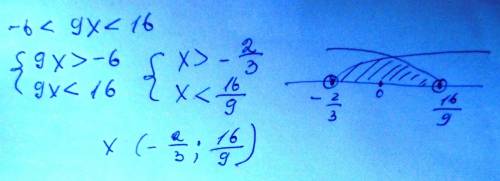 -6 < 9x < 16
{ 9x > -6 { x > -2/3
{ 9x < 16 { x < 16/9
-2/3 0 16/9
x (-2/3 ; 16/9)